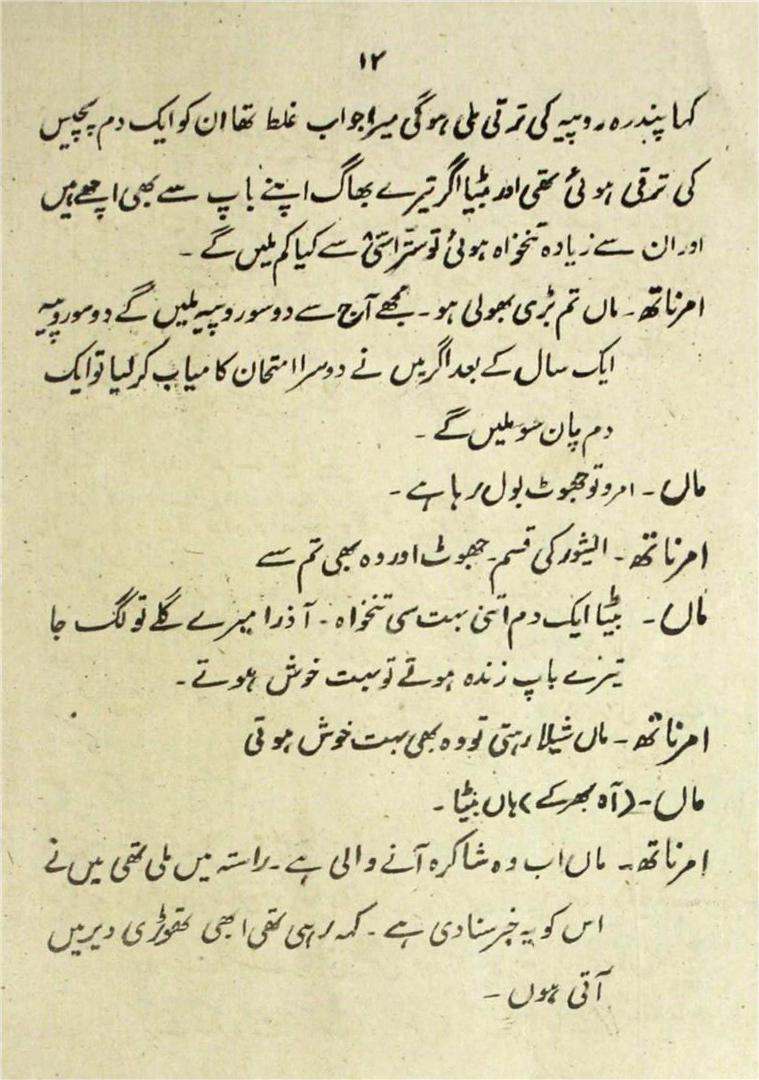 ۱۲
کہا پندرہ روپیہ کی ترقی ملی ہوگی میرا جواب غلط تھا ان کو ایک دم پچیس
کی ترقی ہوئی تھی اور بیٹا اگر تیرے بھاگ اپنے باپ سے بھی اچھے ہیں
اور ان سے زیادہ تنخواہ ہوئی تو ستّر اسّی سے کیا کم ملیں گے ۔
امرناتھ ۔ ماں تم بڑی بھولی ہو ۔ مجھے آج سے دو سو روپیہ ملیں گے دو سو روپیہ
ایک سال کے بعد اگر میں نے دوسرا امتحان کامیاب کر لیا تو ایک
دم پان سو ملیں گے ۔
ماں ۔ امرو تو جھوٹ بول رہا ہے ۔
امرناتھ ۔ ایشور کی قسم جھوٹ اور وہ بھی تم سے
ماں ۔ بیٹا ایک دم اتنی بہت سی تنخواہ ۔ آ ذرا میرے گلے تو لگ جا
تیرے باپ زندہ ہوتے تو بہت خوش ہوتے ۔
امرناتھ ۔ ماں شیلا رہتی تو وہ بھی بہت خوش ہوتی
ماں ۔ (آہ بھر کے) ہاں بیٹا ۔
امرناتھ ۔ ماں اب وہ شاکرہ آنے والی ہے ۔ راستہ میں ملی تھی میں نے
اس کو یہ خبر سنا دی ہے ۔ کہہ رہی تھی ابھی تھوڑی دیر میں
آتی ہوں ۔